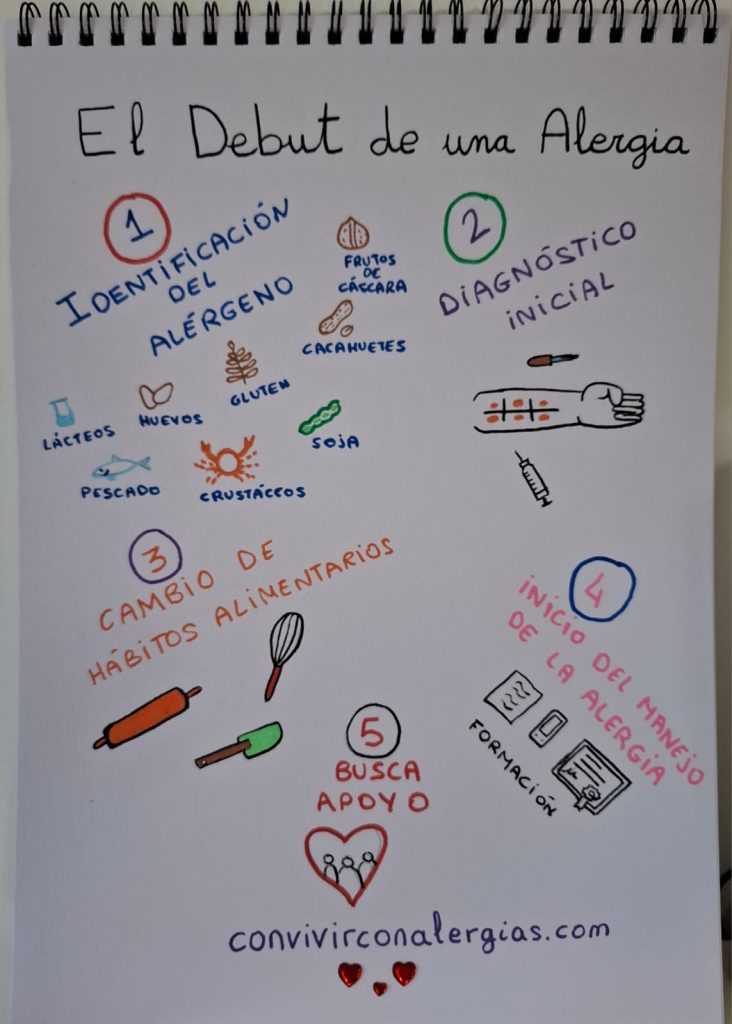 El Debut de una Alergia
1
IDENTIFICACIÓN
DEL
ALÉRGENO
FRUTOS
DE
CÁSCARA
CACAHUETES
GLUTEN
HUEVOS
LÁCTEOS
SOJA
PESCADO
CRUSTÁCEOS
2
DIAGNÓSTICO
INICIAL
3
CAMBIO DE
HÁBITOS ALIMENTARIOS
4
INICIO DEL MANEJO
DE LA ALERGIA
FORMACIÓN
5
BUSCA
APOYO
convivirconalergias.com